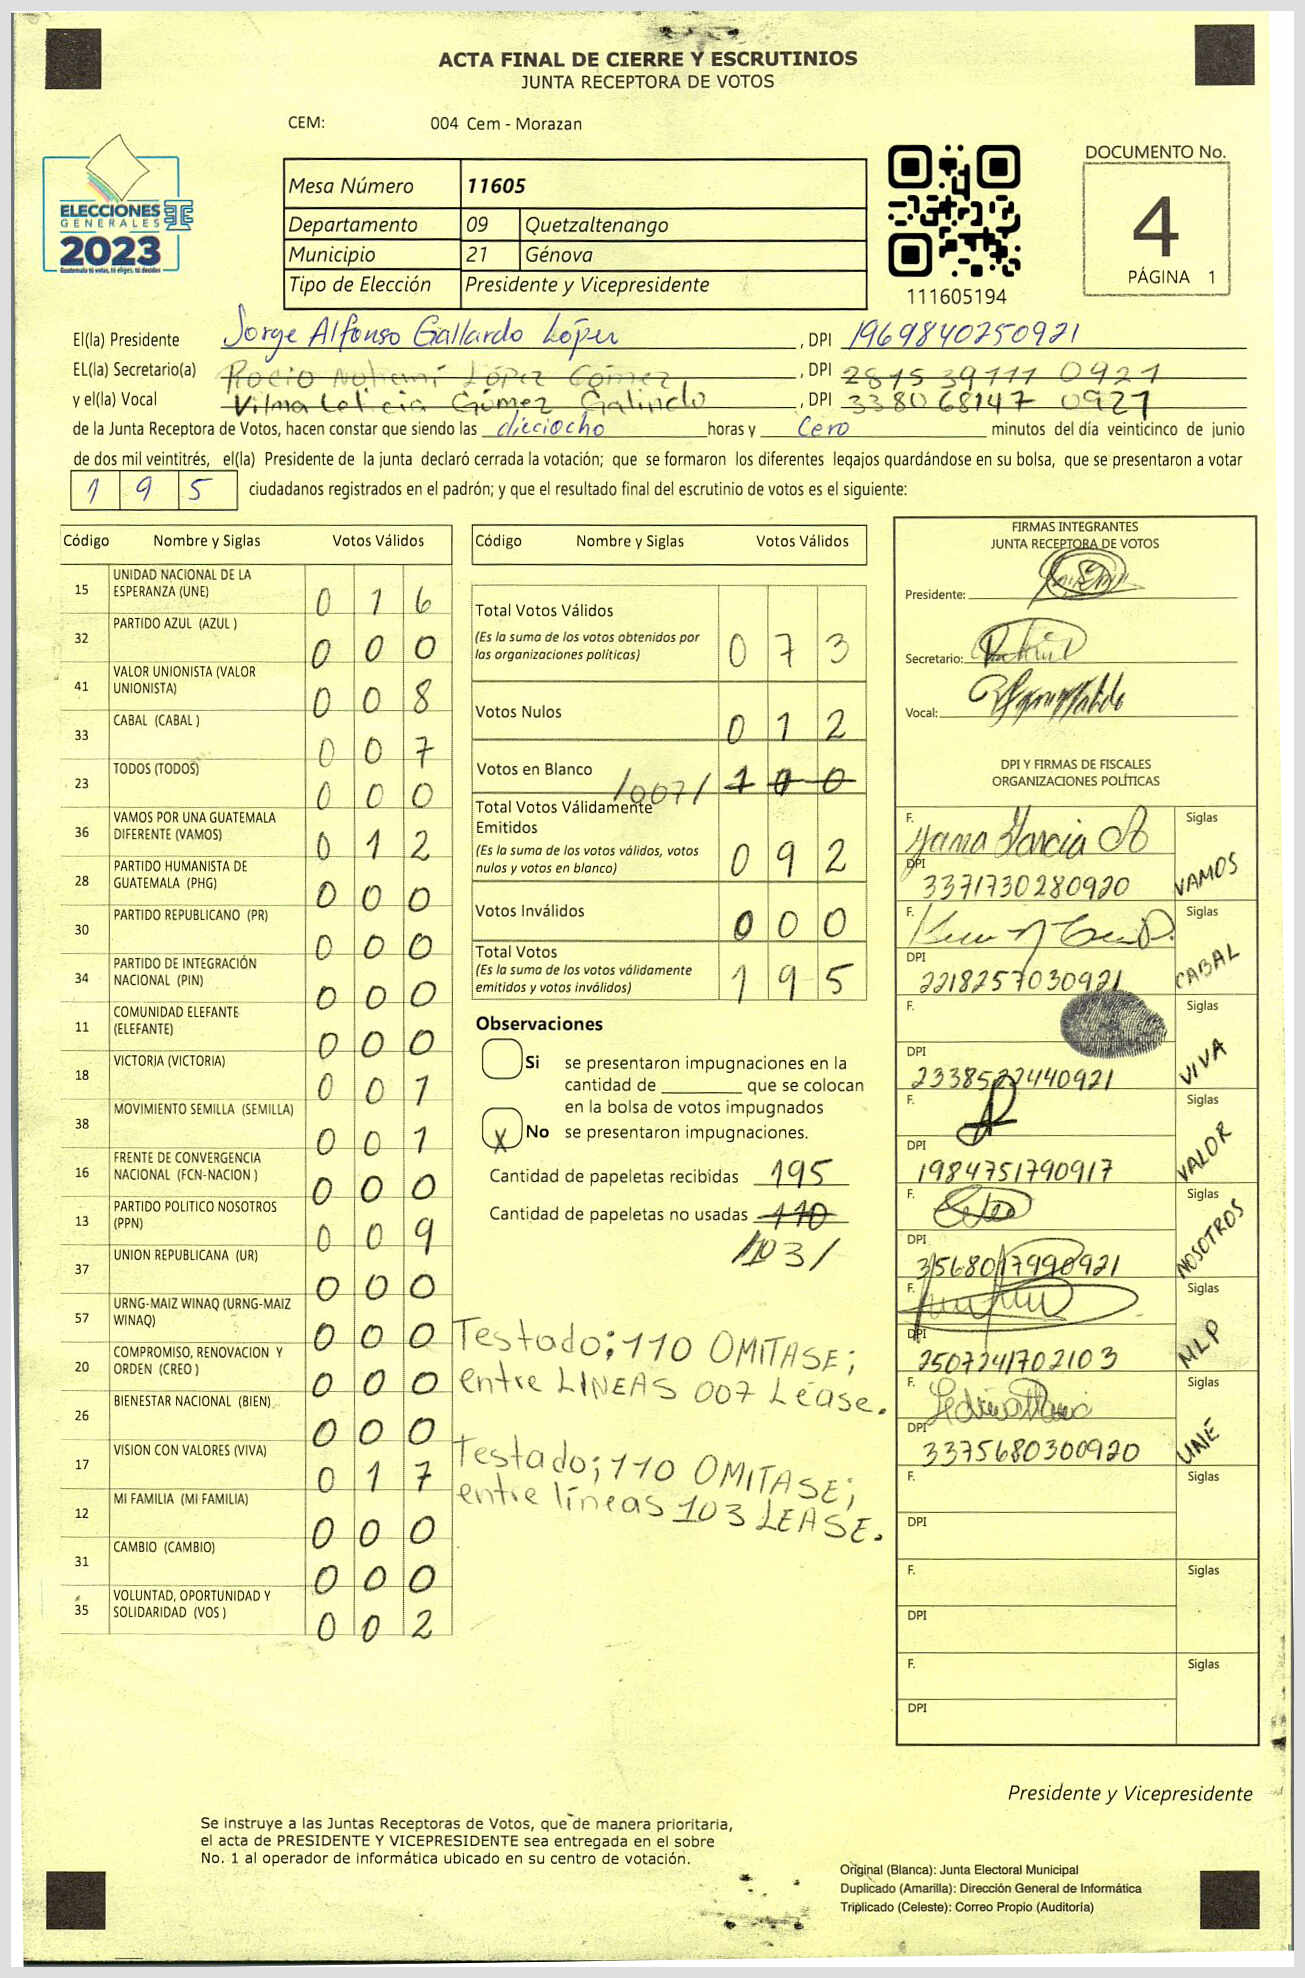 ACTA FINAL DE CIERRE Y ESCRUTINIOS
JUNTA RECEPTORA DE VOTOS
CEM: 004 Cem - Morazan
ELECCIONES
GENERALES
2023
Guatemala tú votas, tú eliges, tú decides
Mesa Número 11605
Departamento 09 Quetzaltenango
Municipio 21 Génova
Tipo de Elección Presidente y Vicepresidente
111605194
DOCUMENTO No.
4
PÁGINA 1
El(la) Presidente Jorge Alfonso Gallardo López, DPI 1969840250921
EL(la) Secretario(a) Rocio Nohemí López Gómez, DPI 2815 39111 0921
y el(la) Vocal Vilma Leticia Gómez Galindo, DPI 3380 68147 0921
de la Junta Receptora de Votos, hacen constar que siendo las dieciocho horas y Cero minutos del día veinticinco de junio
de dos mil veintitrés, el(la) Presidente de la junta declaró cerrada la votación; que se formaron los diferentes legajos quardándose en su bolsa, que se presentaron a votar
195 ciudadanos registrados en el padrón; y que el resultado final del escrutinio de votos es el siguiente:
Código Nombre y Siglas Votos Válidos
15 UNIDAD NACIONAL DE LA ESPERANZA (UNE) 0 1 6
32 PARTIDO AZUL (AZUL ) 0 0 0
41 VALOR UNIONISTA (VALOR UNIONISTA) 0 0 8
33 CABAL (CABAL ) 0 0 7
23 TODOS (TODOS) 0 0 0
36 VAMOS POR UNA GUATEMALA DIFERENTE (VAMOS) 0 1 2
28 PARTIDO HUMANISTA DE GUATEMALA (PHG) 0 0 0
30 PARTIDO REPUBLICANO (PR) 0 0 0
34 PARTIDO DE INTEGRACIÓN NACIONAL (PIN) 0 0 0
11 COMUNIDAD ELEFANTE (ELEFANTE) 0 0 0
18 VICTORIA (VICTORIA) 0 0 1
38 MOVIMIENTO SEMILLA (SEMILLA) 0 0 1
16 FRENTE DE CONVERGENCIA NACIONAL (FCN-NACION ) 0 0 0
13 PARTIDO POLITICO NOSOTROS (PPN) 0 0 9
37 UNION REPUBLICANA (UR) 0 0 0
57 URNG-MAIZ WINAQ (URNG-MAIZ WINAQ) 0 0 0
20 COMPROMISO, RENOVACION Y ORDEN (CREO ) 0 0 0
26 BIENESTAR NACIONAL (BIEN) 0 0 0
17 VISION CON VALORES (VIVA) 0 1 7
12 MI FAMILIA (MI FAMILIA) 0 0 0
31 CAMBIO (CAMBIO) 0 0 0
35 VOLUNTAD, OPORTUNIDAD Y SOLIDARIDAD (VOS ) 0 0 2
Código Nombre y Siglas Votos Válidos
Total Votos Válidos
(Es la suma de los votos obtenidos por
las organizaciones políticas) 0 7 3
Votos Nulos 0 1 2
Votos en Blanco /007/
Total Votos Válidamente
Emitidos
(Es la suma de los votos válidos, votos
nulos y votos en blanco) 0 9 2
Votos Inválidos 0 0 0
Total Votos
(Es la suma de los votos válidamente
emitidos y votos inválidos) 1 9 5
Observaciones
Si se presentaron impugnaciones en la
cantidad de ________ que se colocan
en la bolsa de votos impugnados
X No se presentaron impugnaciones.
Cantidad de papeletas recibidas 195
Cantidad de papeletas no usadas 110
/103/
Testado; 110 OMITASE;
entre LINEAS 007 Léase.
Testado; 110 OMITASE;
entre líneas 103 LEASE.
FIRMAS INTEGRANTES
JUNTA RECEPTORA DE VOTOS
Presidente:
Secretario:
Vocal:
DPI Y FIRMAS DE FISCALES
ORGANIZACIONES POLÍTICAS
F. Siglas
DPI 3371730280920 VAMOS
F. Siglas
DPI 2218257030921 CABAL
F. Siglas
DPI VIVA
F. Siglas
DPI 1984751790917 VALOR
F. Siglas
DPI NOSOTROS
F. Siglas
DPI 2507241702103 MLP
F. Siglas
DPI 3375680300920 UNE
F. Siglas
DPI
F. Siglas
DPI
F. Siglas
DPI
Presidente y Vicepresidente
Se instruye a las Juntas Receptoras de Votos, que de manera prioritaria,
el acta de PRESIDENTE Y VICEPRESIDENTE sea entregada en el sobre
No. 1 al operador de informática ubicado en su centro de votación.
Original (Blanca): Junta Electoral Municipal
Duplicado (Amarilla): Dirección General de Informática
Triplicado (Celeste): Correo Propio (Auditoría)